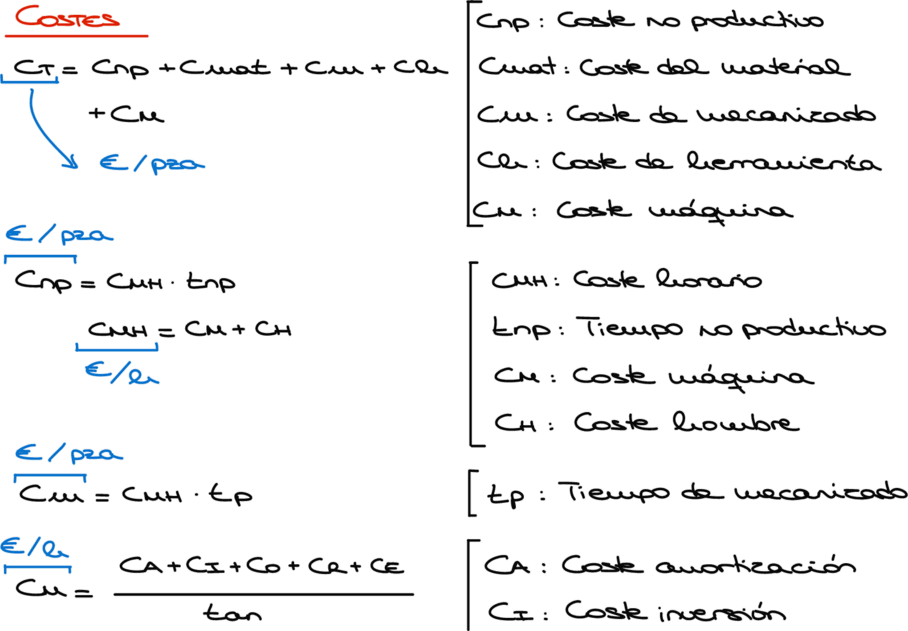 COSTES
CT = Cnp + Cmat + Cm + Ch
+ CM
€/pza
Cnp : Coste no productivo
Cmat : Coste del material
Cm : Coste de mecanizado
Ch : Coste de herramienta
CM : Coste máquina
€/pza
Cnp = CMH · tnp
CMH = CM + CH
€/h
CMH : Coste horario
tnp : Tiempo no productivo
CM : Coste máquina
CH : Coste hombre
€/pza
Cm = CMH · tp
tp : Tiempo de mecanizado
€/h
CM = CA + CI + CO + CR + CE
tan
CA : Coste amortización
CI : Coste inversión